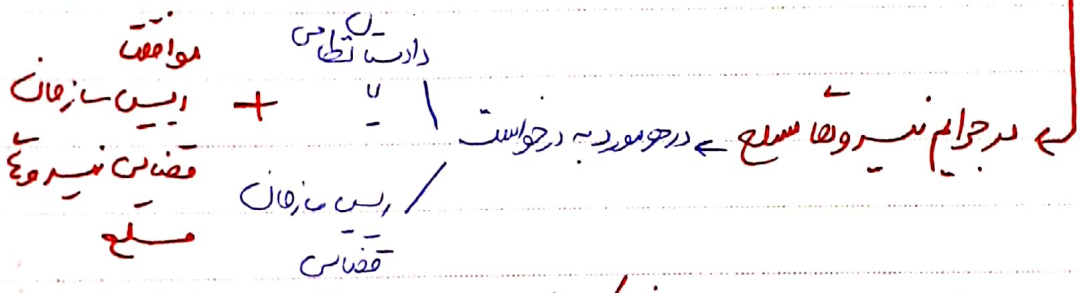 ← در جرایم نیروهای مسلح ← در هر مورد به درخواست
دادستان نظامی
یا
رییس سازمان
قضایی
+
موافقت
رییس سازمان
قضایی نیروهای
مسلح